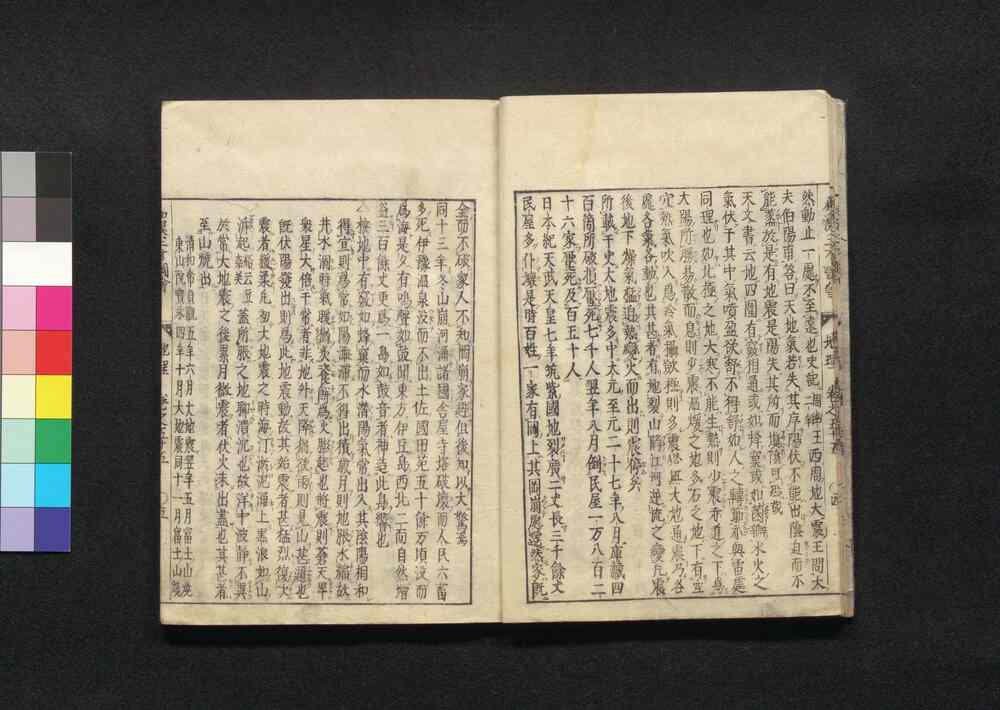 然動止一處不至遠也史記周幽王二年西周地大震王問大
夫伯陽甫答曰天地氣若失其序陽伏不能出陰迫而不
能蒸於是有地震是陽失其所而塡陰也
天文書云地四圍有竅相通或如蜂窠或如菌瓣水火之
氣伏于其中之氣噴盈欲舒不得舒如人之轉筋不與雷處
同理也如北極之地大寒不能生熱則少震赤道之下
大陽所勝易散而息則少震温煖之地多石之地下有空
穴熱氣吹入為冷氣攝斂極則多震無大地通震乃各
處各氣各動也其甚者有地裂山崩江河逆流之變凡震
後地下燥氣猛迫熱火而出則震停矣
所載于史大地震多中太元至元二十七年八月庫藏四
百箇所破損壓死七千人翌年八月倒民屋一万八百二
十六家壓死及百五十人
日本紀天武天皇七年筑紫國地裂廣二丈長三千餘丈
民屋多仆壞是時百姓一家有岡上其岡崩處遷然家既
全而不破家人不知岡崩家避但後知以大驚焉
同十三年冬山崩河涌諸國舍屋寺塔破壞而人民六畜
多死伊豫温泉沒而不出土佐國田苑五十餘万頃没而
為海是夕有鳴聲如鼓聞東方伊豆島西北二面自然增
益三百餘丈更為一島如鼓音者神造此島響也
△按地中有竅如蜂窠而水潛陽氣常出入其陰陽相和
得宜則為常如陽滯不得出積歲月則地脹水縮故
井水涸時氣亦為火脹起也將震則蒼天卑
衆星大倍于常者非地外天降欲雨則見山甚邇也
旣伏陽發出則為此地震動故其始震者甚猛烈復次
震者緩柔凡初大地震之時海汀淤泥涌上黒浪如山
泝起俗云豆奈美蓋所脹之地潮潰沉也故洋中波靜不異
於常大地震之後累月微震者伏火未出盡也其甚者
至山燒出
清和帝貞觀五年六月大地震翌年五月富士山燒
東山院寶永四年十月大地震同十一月富士山燒